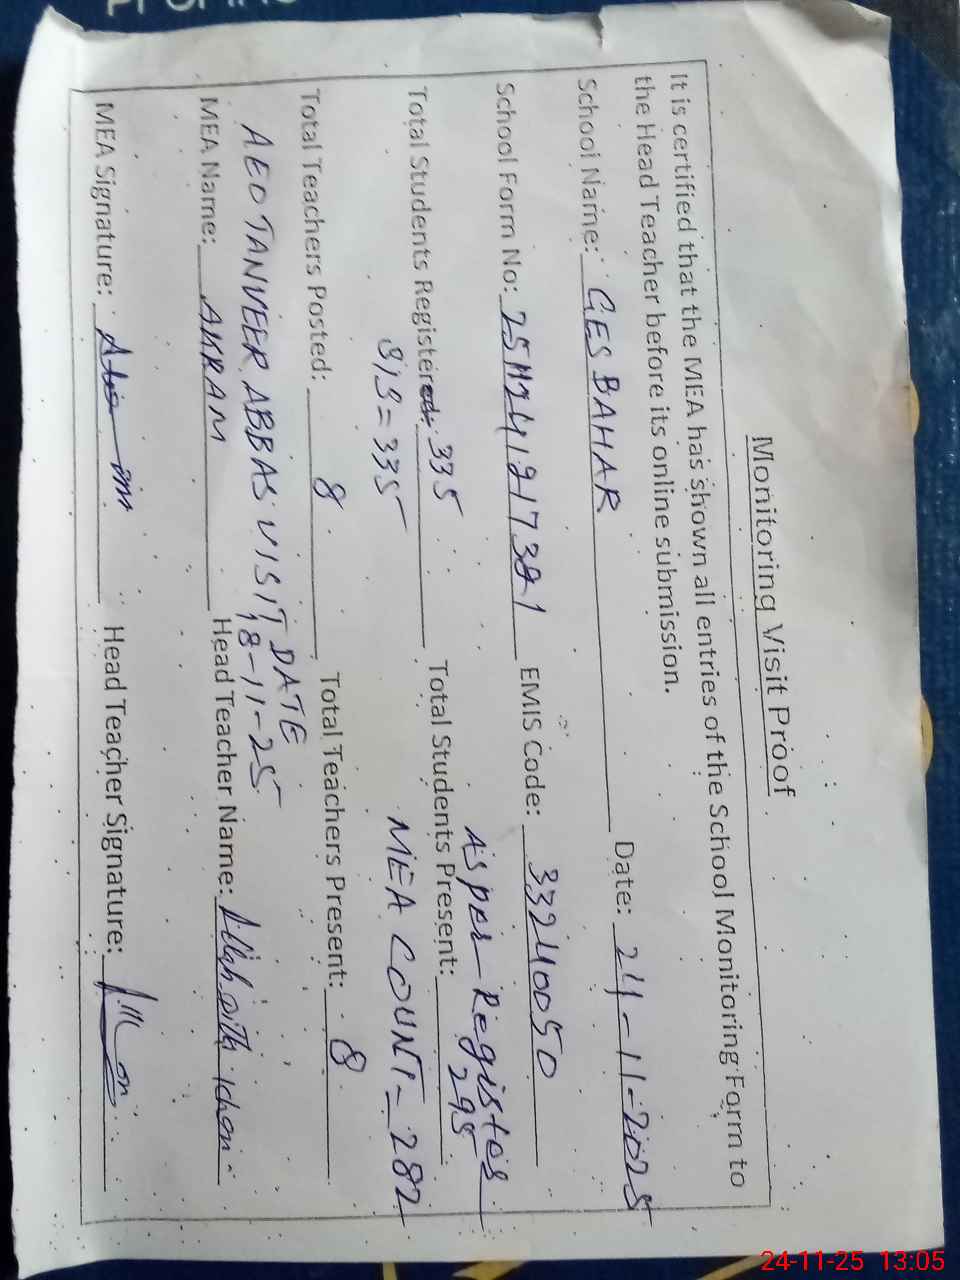 Monitoring Visit Proof
It is certified that the MEA has shown all entries of the School Monitoring Form to
the Head Teacher before its online submission.
School Name: GES BAHAR Date: 24-11-2025
School Form No: EMIS Code: 33240050
As per Register
Total Students Registered: 335 Total Students Present: 295
335 MEA COUNT- 282
Total Teachers Posted: 8 Total Teachers Present: 8
AEO TANVEER ABBAS VISIT DATE
18-11-25
MEA Name: AKRAM Head Teacher Name: Allah
MEA Signature: Head Teacher Signature:
24-11-25 13:05